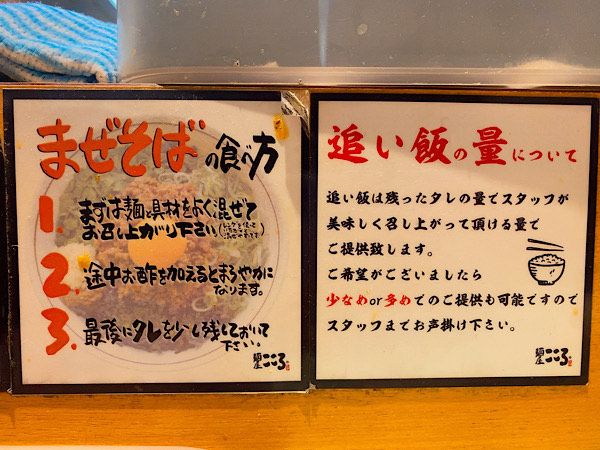 まぜそばの食べ方
1. まずは麺と具材をよく混ぜて
お召し上がり下さい。
2. 途中お酢を加えるとまろやかに
なります。
3. 最後にタレを少し残しておいて
下さい。
麺屋こころ
追い飯の量について
追い飯は残ったタレの量でスタッフが
美味しく召し上がって頂ける量で
ご提供致します。
ご希望がございましたら
少なめor多めでのご提供も可能ですので
スタッフまでお声掛け下さい。
麺屋こころ